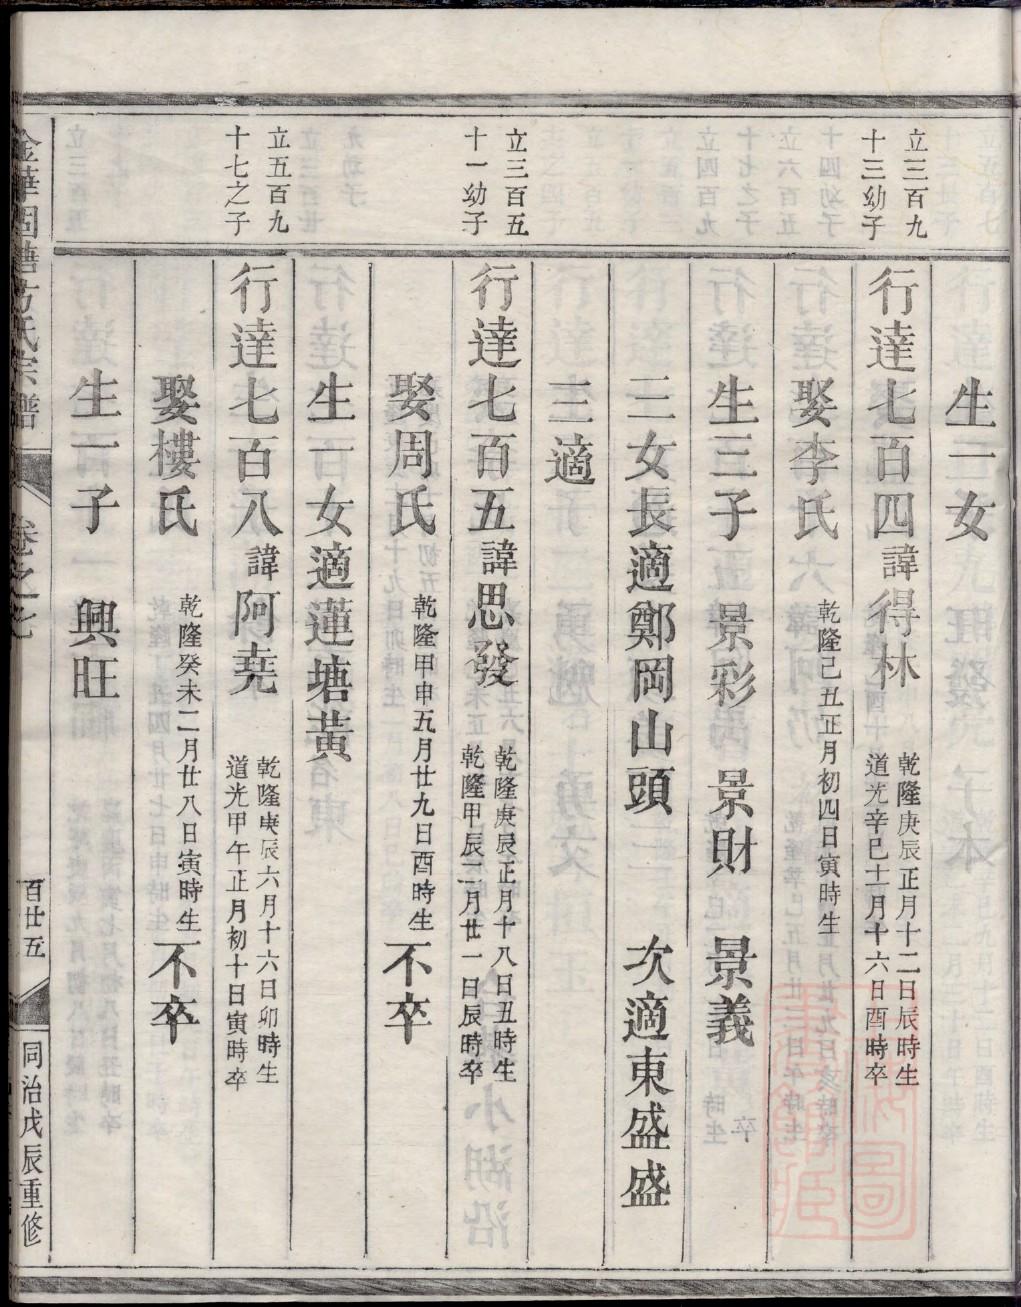 生一女
立三百九
十三幼子
行達七百四諱得林
乾隆庚辰正月十二日辰時生
道光辛巳十月十六日酉時卒
娶李氏
乾隆己丑正月初四日寅時生
生三子 景彩 景財 景義
三女長適鄭岡山頭 次適東盛盛
三適
立三百五
十一幼子
行達七百五諱思發
乾隆庚辰正月十八日丑時生
乾隆甲辰二月廿一日辰時卒
娶周氏
乾隆甲申五月廿九日酉時生
不卒
生一女適蓮塘黃
立五百九
十七之子
行達七百八諱阿堯
乾隆庚辰六月十六日卯時生
道光甲午正月初十日寅時卒
娶樓氏
乾隆癸未二月廿八日寅時生
不卒
生一子 興旺
卷之七
百廿五
同治戊辰重修